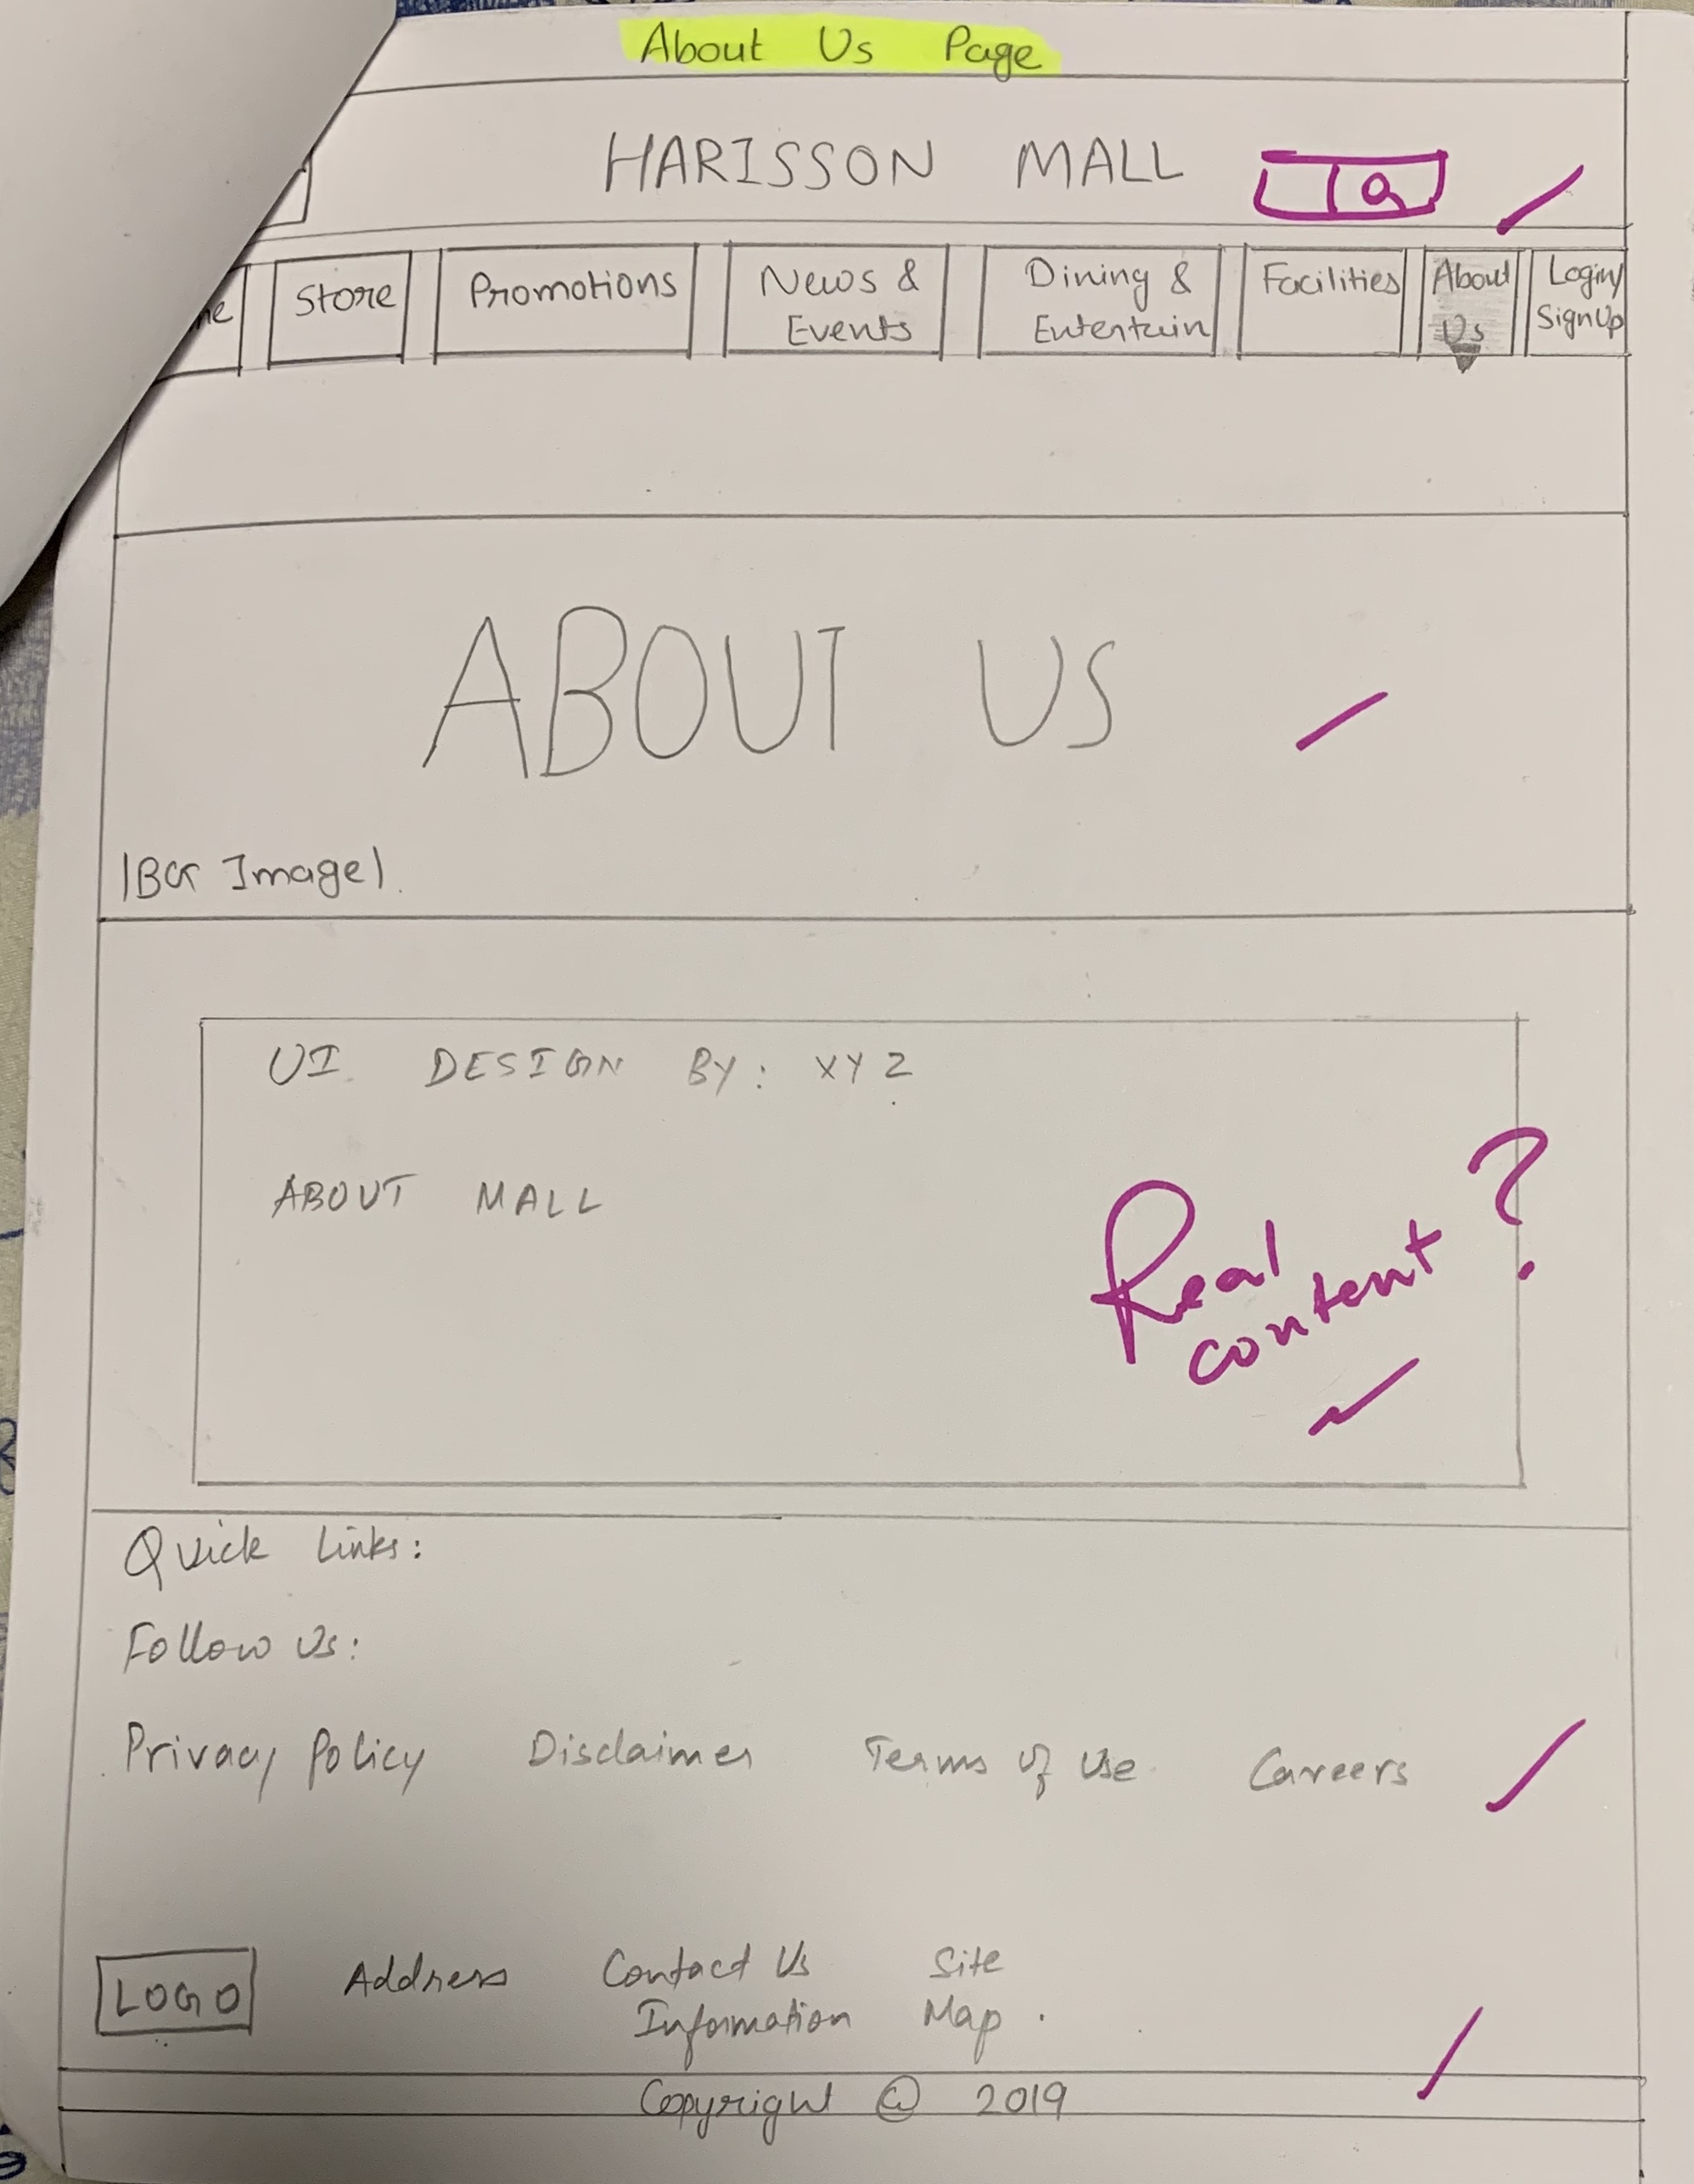 About Us Page
HARISSON MALL
Store
Promotions
News &
Events
Dining &
Entertain
Facilities
About
Us
Login/
SignUp
ABOUT US
|BG Image|
UI DESIGN BY: XYZ
ABOUT MALL
Real
content?
Quick Links:
Follow Us:
Privacy Policy Disclaimer Terms of Use Careers
LOGO
Address
Contact Us
Information
Site
Map.
Copyright @ 2019